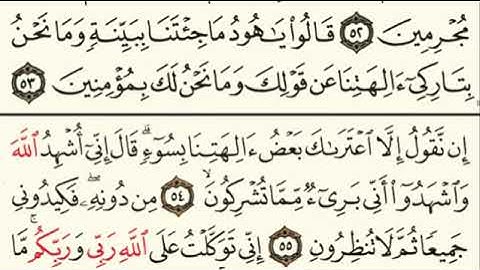 مُجۡرِمِينَ ٥٢ قَالُواْ يَٰهُودُ مَا جِئۡتَنَا بِبَيِّنَةٖ وَمَا نَحۡنُ
بِتَارِكِيٓ ءَالِهَتِنَا عَن قَوۡلِكَ وَمَا نَحۡنُ لَكَ بِمُؤۡمِنِينَ ٥٣
إِن نَّقُولُ إِلَّا ٱعۡتَرَىٰكَ بَعۡضُ ءَالِهَتِنَا بِسُوٓءٖۗ قَالَ إِنِّيٓ أُشۡهِدُ ٱللَّهَ
وَٱشۡهَدُوٓاْ أَنِّي بَرِيٓءٞ مِّمَّا تُشۡرِكُونَ ٥٤ مِن دُونِهِۦۖ فَكِيدُونِي
جَمِيعٗا ثُمَّ لَا تُنظِرُونِ ٥٥ إِنِّي تَوَكَّلۡتُ عَلَى ٱللَّهِ رَبِّي وَرَبِّكُمۚ مَّا